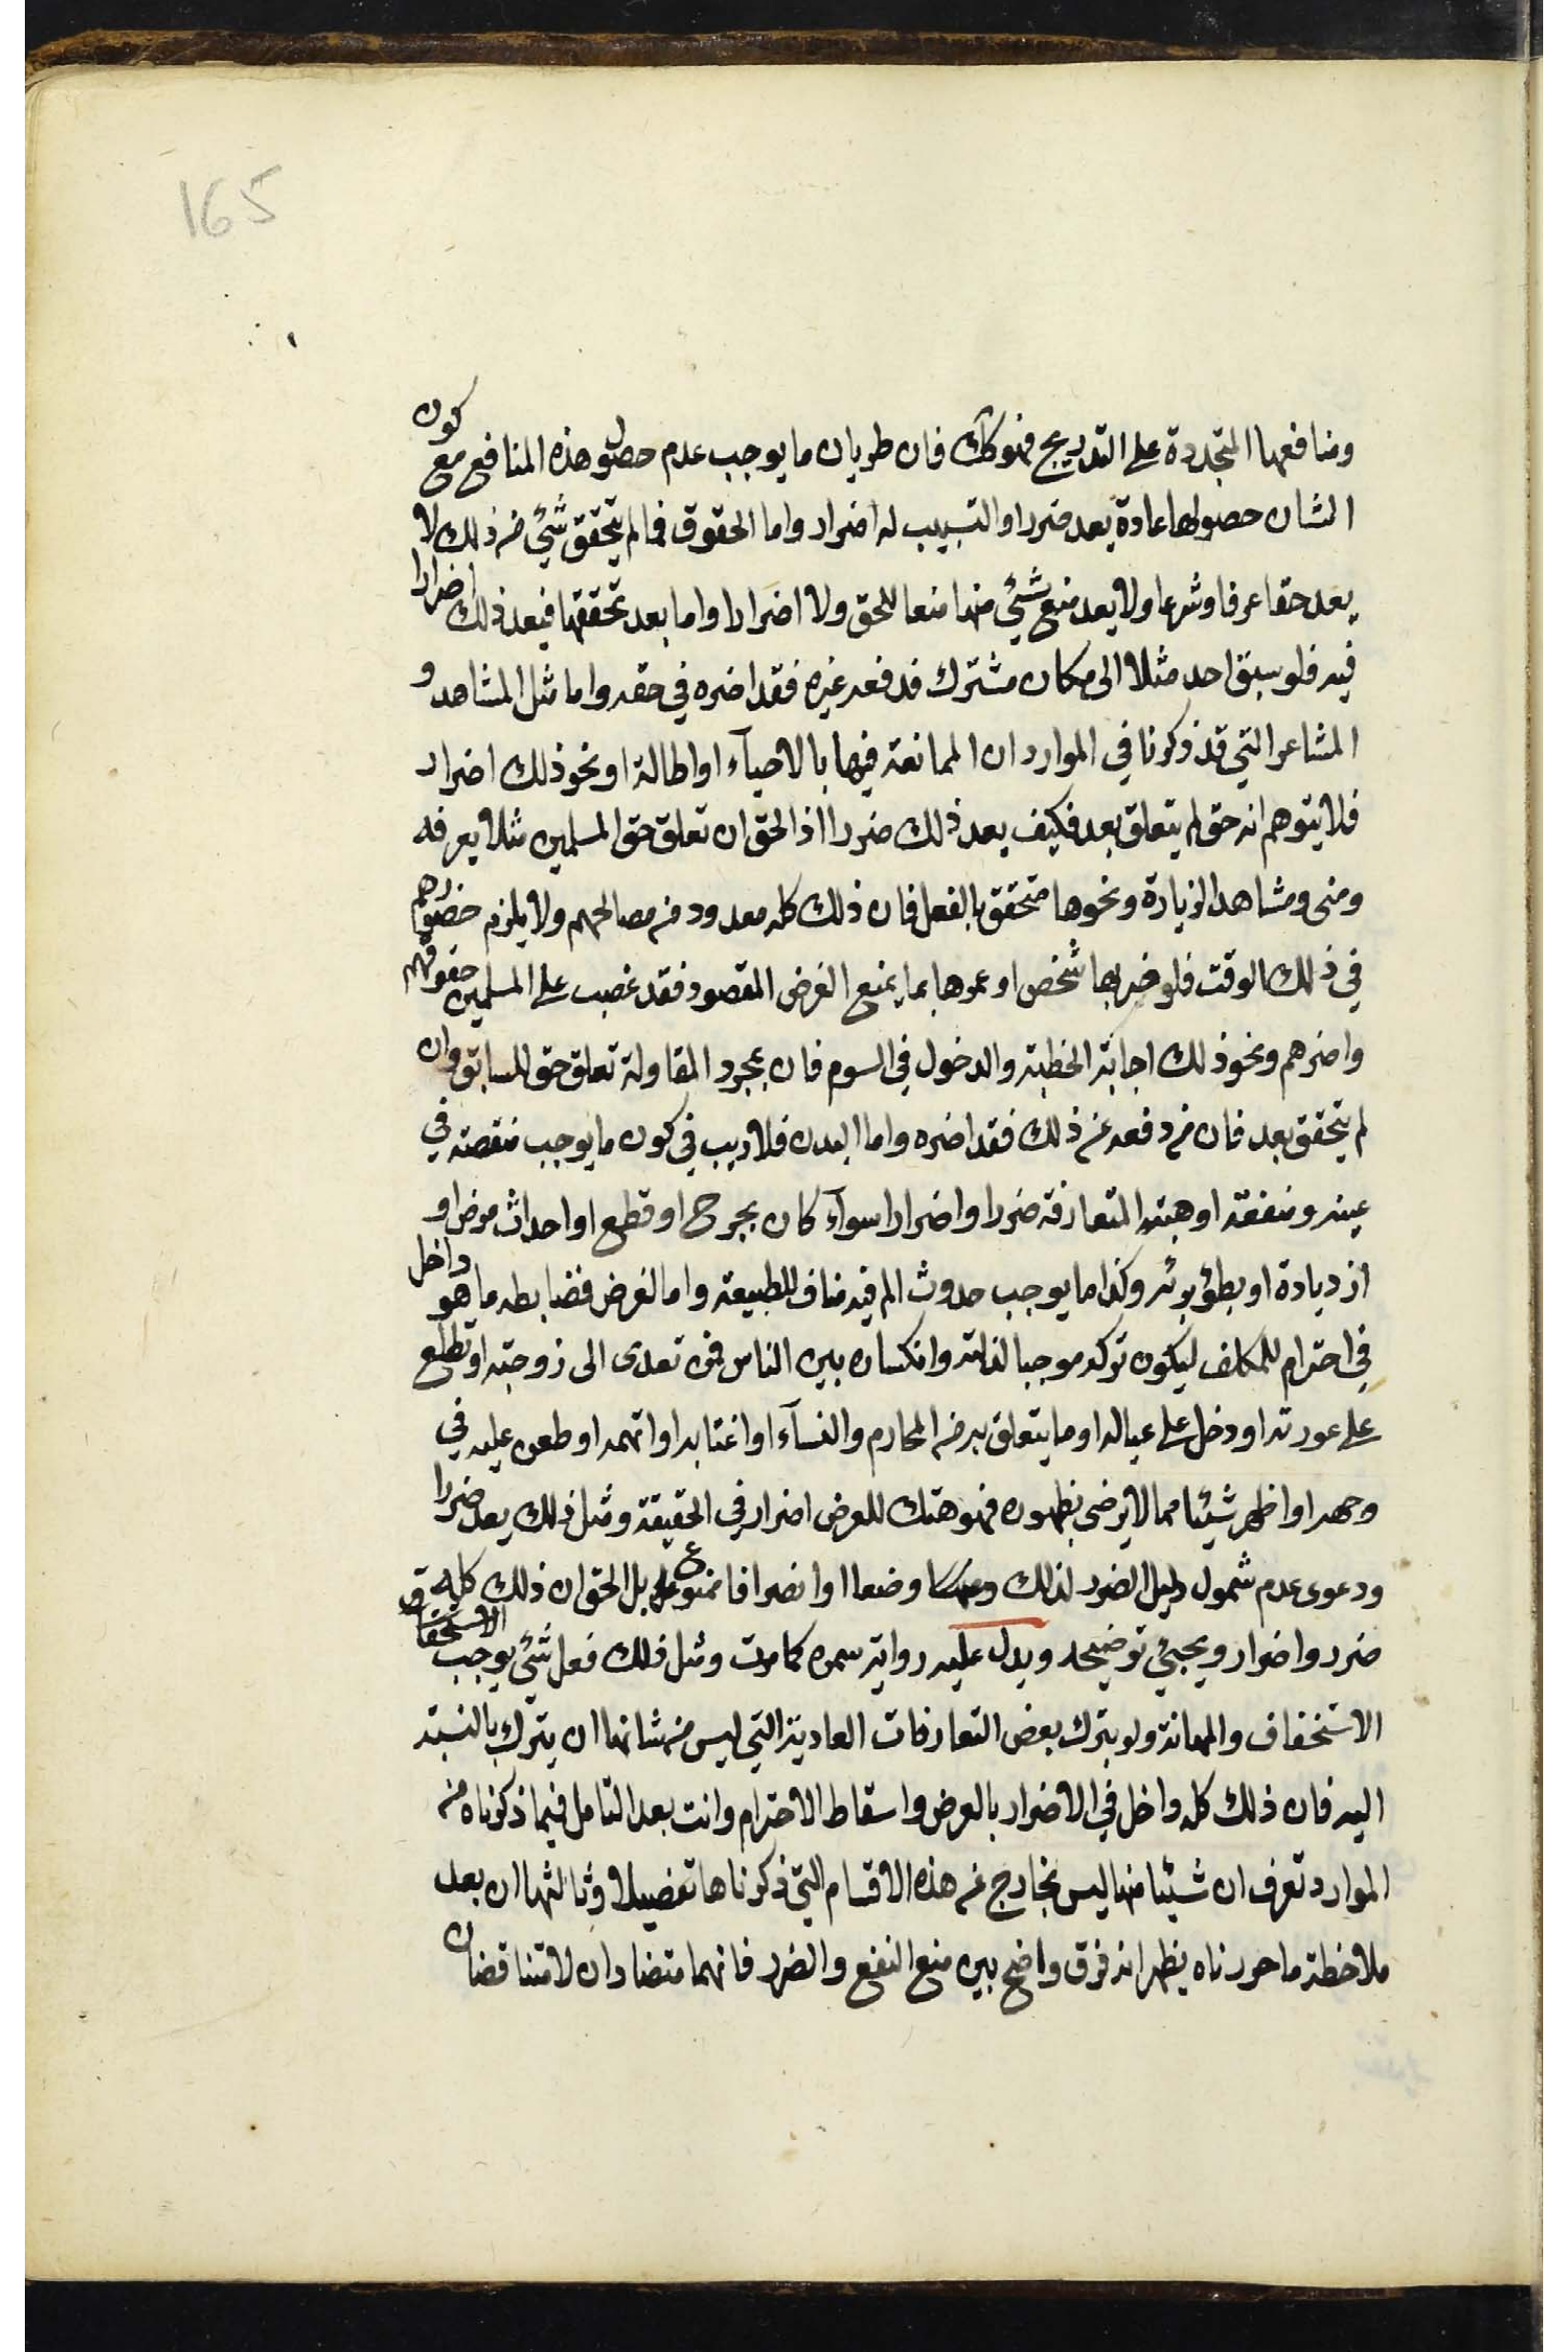 165
ومنافعها المتجددة على التدريج فهو كك فان طريان ما يوجب عدم حصول هذه المنافع مع كون
الشان حصولها عادة يعد ضررا والتسبيب له اضرار واما الحقوق فما لم يتحقق شئ من ذلك لا
يعد حقا عرفا وشرعا ولا يعد منع شئ منها منعا للحق ولا اضرارا واما بعد تحققها فيعد ذلك اضرارا
فيه فلو سبق احد مثلا الى مكان مشترك فدفعه غيره فقد اضره في حقه واما مثل المشاهد و
المشاعر التي قد ذكرنا في الموارد ان الممانعة فيها بالاحيآء او اطالة او نحو ذلك اضرار
فلا يتوهم انه حق لم يتعلق بعد فكيف يعد ذلك ضررا اذ الحق ان تعلق حق المسلمين مثلا بعرفه
ومنى ومشاهد الزيارة ونحوها متحقق بالفعل فان ذلك كله معدود من مصالحهم ولا يلزم حضورهم
في ذلك الوقت فلو خربها شخص او عمرها بما يمنع الغرض المقصود فقد غصب على المسلمين حقوقهم
واضرهم ونحو ذلك اجابة الخطبة والدخول في السوم فان بمجرد المقاولة تعلق حق للسابق وان
لم يتحقق بعد فان من دفعه عن ذلك فقد اضره واما البدن فلا ريب في كون ما يوجب منقصة في
عينه ومنفعته او هيئته المتعارفة ضررا واضرارا سوآء كان بجرح او قطع او احداث مرض او
ازدياده او بطؤ برئه وكذا ما يوجب حدوث الم فيه مناف للطبيعة واما العرض فضابطه ما هو داخل
في احترام للمكلف ليكون تركه موجبا لذلته وانكساره بين الناس فمن تعدى الى زوجته او تطلع
على عورته او دخل على عياله او ما يتعلق به من المحارم والنسآء او اغتابه او اتهمه او طعن عليه في
وجهه او اظهر شيئا مما لا يرضى بظهوره فهو هتك للعرض اضرار في الحقيقة ومثل ذلك يعد ضررا
ودعوى عدم شمول دليل الضرر لذلك وضعا او انصرافا ممنوع بل الحق ان ذلك كله
ضرر واضرار ويجيئ توضيحه ويدل عليه رواية سمره كما مرت ومثل ذلك فعل شئ يوجب
الاستخفاف والمهانة ولو بترك بعض التعارفات العادية التي ليس من شانها ان يترك بالنسبة
اليه فان ذلك كله داخل في الاضرار بالعرض واسقاط الاحترام وانت بعد التامل فيما ذكرناه من
الموارد تعرف ان شيئا منها ليس بخارج عن هذه الاقسام التي ذكرناها تفصيلا وثالثها ان بعد
ملاحظة ما حررناه يظهر انه فرق واضح بين منع النفع والضرر فانهما متضادان لا متناقضان